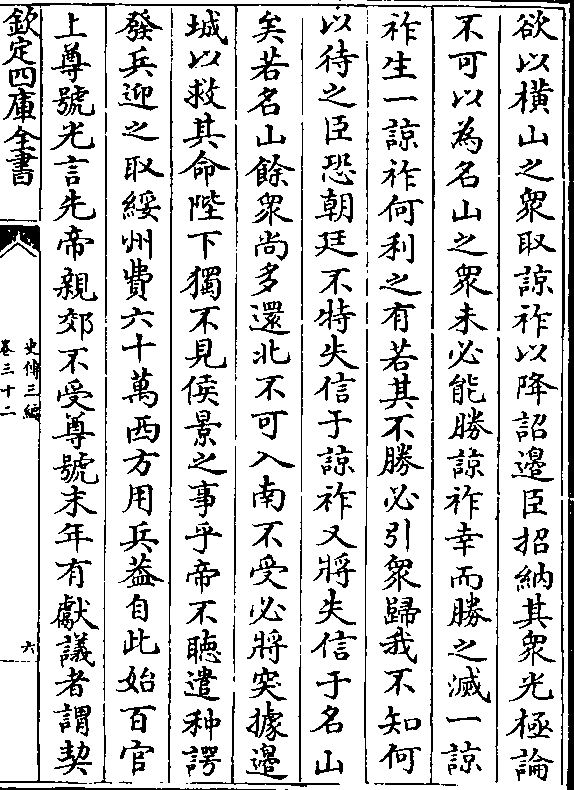 欲以橫山之衆取諒祚以降詔邊臣招納其衆光極論
不可以為名山之衆未必能勝諒祚幸而勝之滅一諒
祚生一諒祚何利之有若其不勝必引衆歸我不知何
以待之臣恐朝廷不特失信于諒祚又將失信于名山
矣若名山餘衆尚多還北不可入南不受必將突據邊
城以救其命陛下獨不見侯景之事乎帝不聽遣种諤
發兵迎之取綏州費六十萬西方用兵葢自此始百官
上尊號光言先帝親郊不受尊號末年有獻議者謂契
欽定四庫全書
史傳三編
卷三十二
六